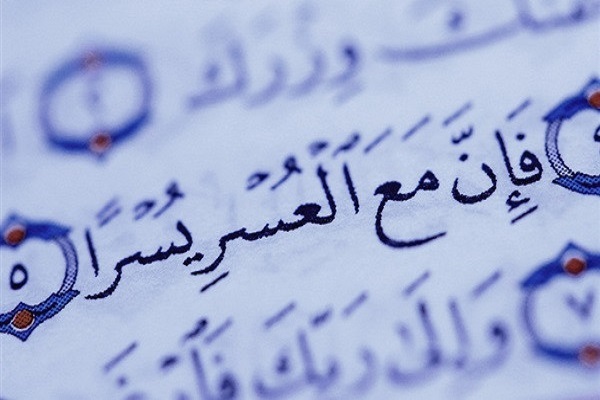 عَنكَ وِزْرَكَ ٢
فَإِنَّ مَعَ ٱلْعُسْرِ يُسْرًا ٥
٧ وَإِلَىٰ رَبِّكَ فَٱرْغَب